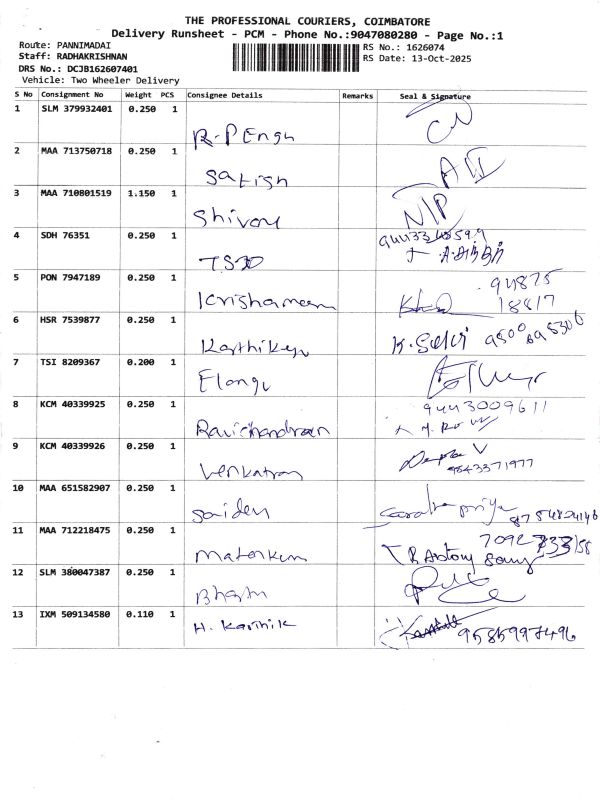 THE PROFESSIONAL COURIERS, COIMBATORE
Delivery Runsheet - PCM - Phone No.:9047080280 - Page No.:1
Route: PANNIMADAI
RS No.: 1626074
Staff: RADHAKRISHNAN
RS Date: 13-Oct-2025
DRS No.: DCJB162607401
Vehicle: Two Wheeler Delivery
S No Consignment No Weight PCS Consignee Details Remarks Seal & Signature
1 SLM 379932401 0.250 1
R-P Engn
2 MAA 713750718 0.250 1
Satish
3 MAA 710801519 1.150 1
Shivam
4 SDH 76351 0.250 1
5 PON 7947189 0.250 1 94875
18817
6 HSR 7539877 0.250 1
Karthikeyn K. Selvi
7 TSI 8209367 0.200 1
Elango
8 KCM 40339925 0.250 1 9443009611
Ravichandran
9 KCM 40339926 0.250 1 Deepa V
Venkatran 9843371977
10 MAA 651582907 0.250 1
11 MAA 712218475 0.250 1 7092
12 SLM 380047387 0.250 1
13 IXM 509134580 0.110 1
H. Karthik 9585997496